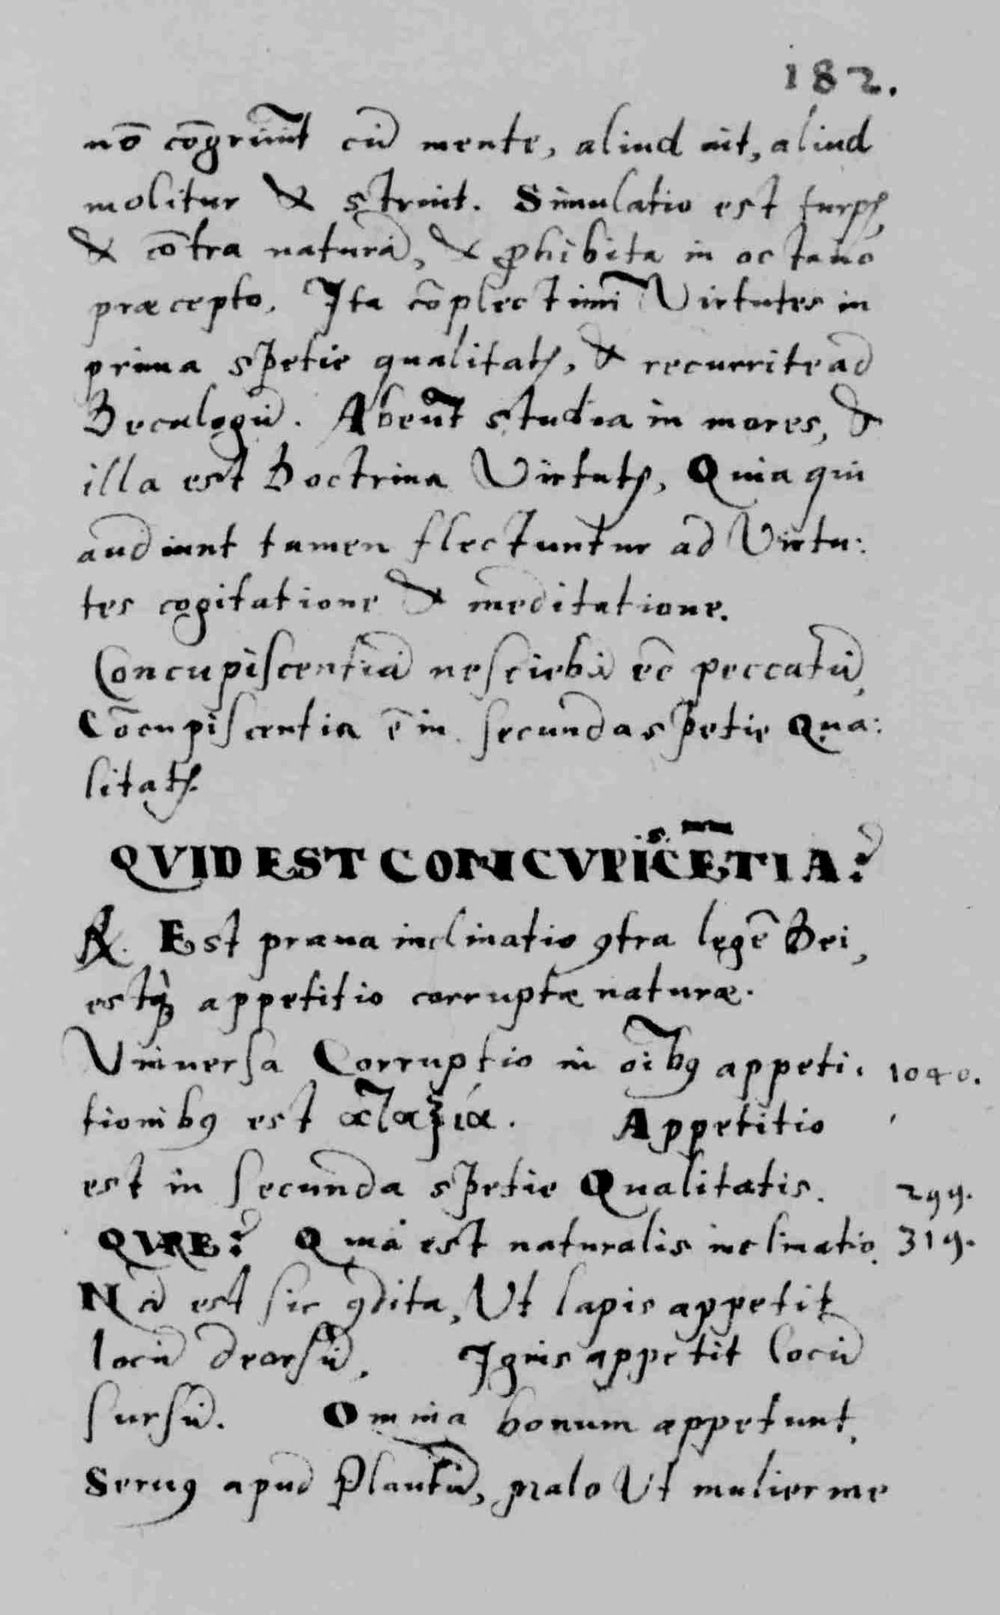 182.
nō cōgruūt cū mente, aliud ait, aliud
molitur & struit. Simulatio est turpis,
& cōtra naturā, & prohibita in octavo
præcepto. Ita cōplectimī Virtutes in
prima spetie qualitatis, & recurrite ad
Decalogū. Abeūt studia in mores, &
illa est Doctrina Virtutis, Quia qui
audiunt tamen flectuntur ad Virtu:
tes cogitatione & meditatione.
Concupiscentiā nesciebā eē peccatū,
Cōcupiscentia ē in secunda spetie Qua:
litatis.
QVID EST CONCVPISCĒTIA?
R. Est praua inclinatio ꝯtra legē Dei,
estq̃ꝫ appetitio corruptæ naturæ.
Vniuersa Corruptio in oībꝰ appeti: 1040.
tionibꝰ est ἀταξία. Appetitio
est in secunda spetie Qualitatis. 299.
QVRE? Quia est naturalis inclinatio. 319.
Nā est sic ꝯdita, Ut lapis appetit
locū deorsū, Ignis appetit locū
sursū. Omnia bonum appetunt.
Seruꝰ apud Plautū, malo Ut mulier me